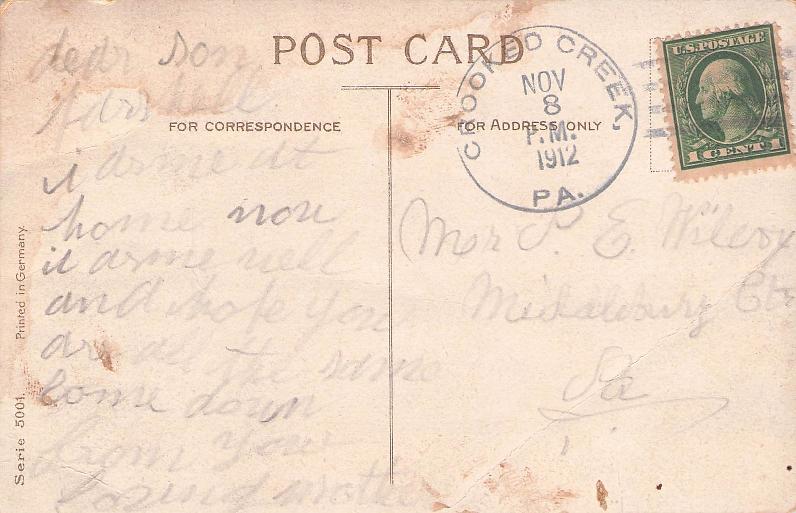 POST CARD
FOR CORRESPONDENCE
FOR ADDRESS ONLY
CROOKED CREEK,
NOV
8
P.M.
1912
PA.
U.S.POSTAGE
1 CENT 1
dear son
i at
home now
i well
and hope you
are all the same
Come down
from your
loving mother
Mr P. E. Wilcox
Middlebury Ctr
Pa
Printed in Germany.
Serie 5001.